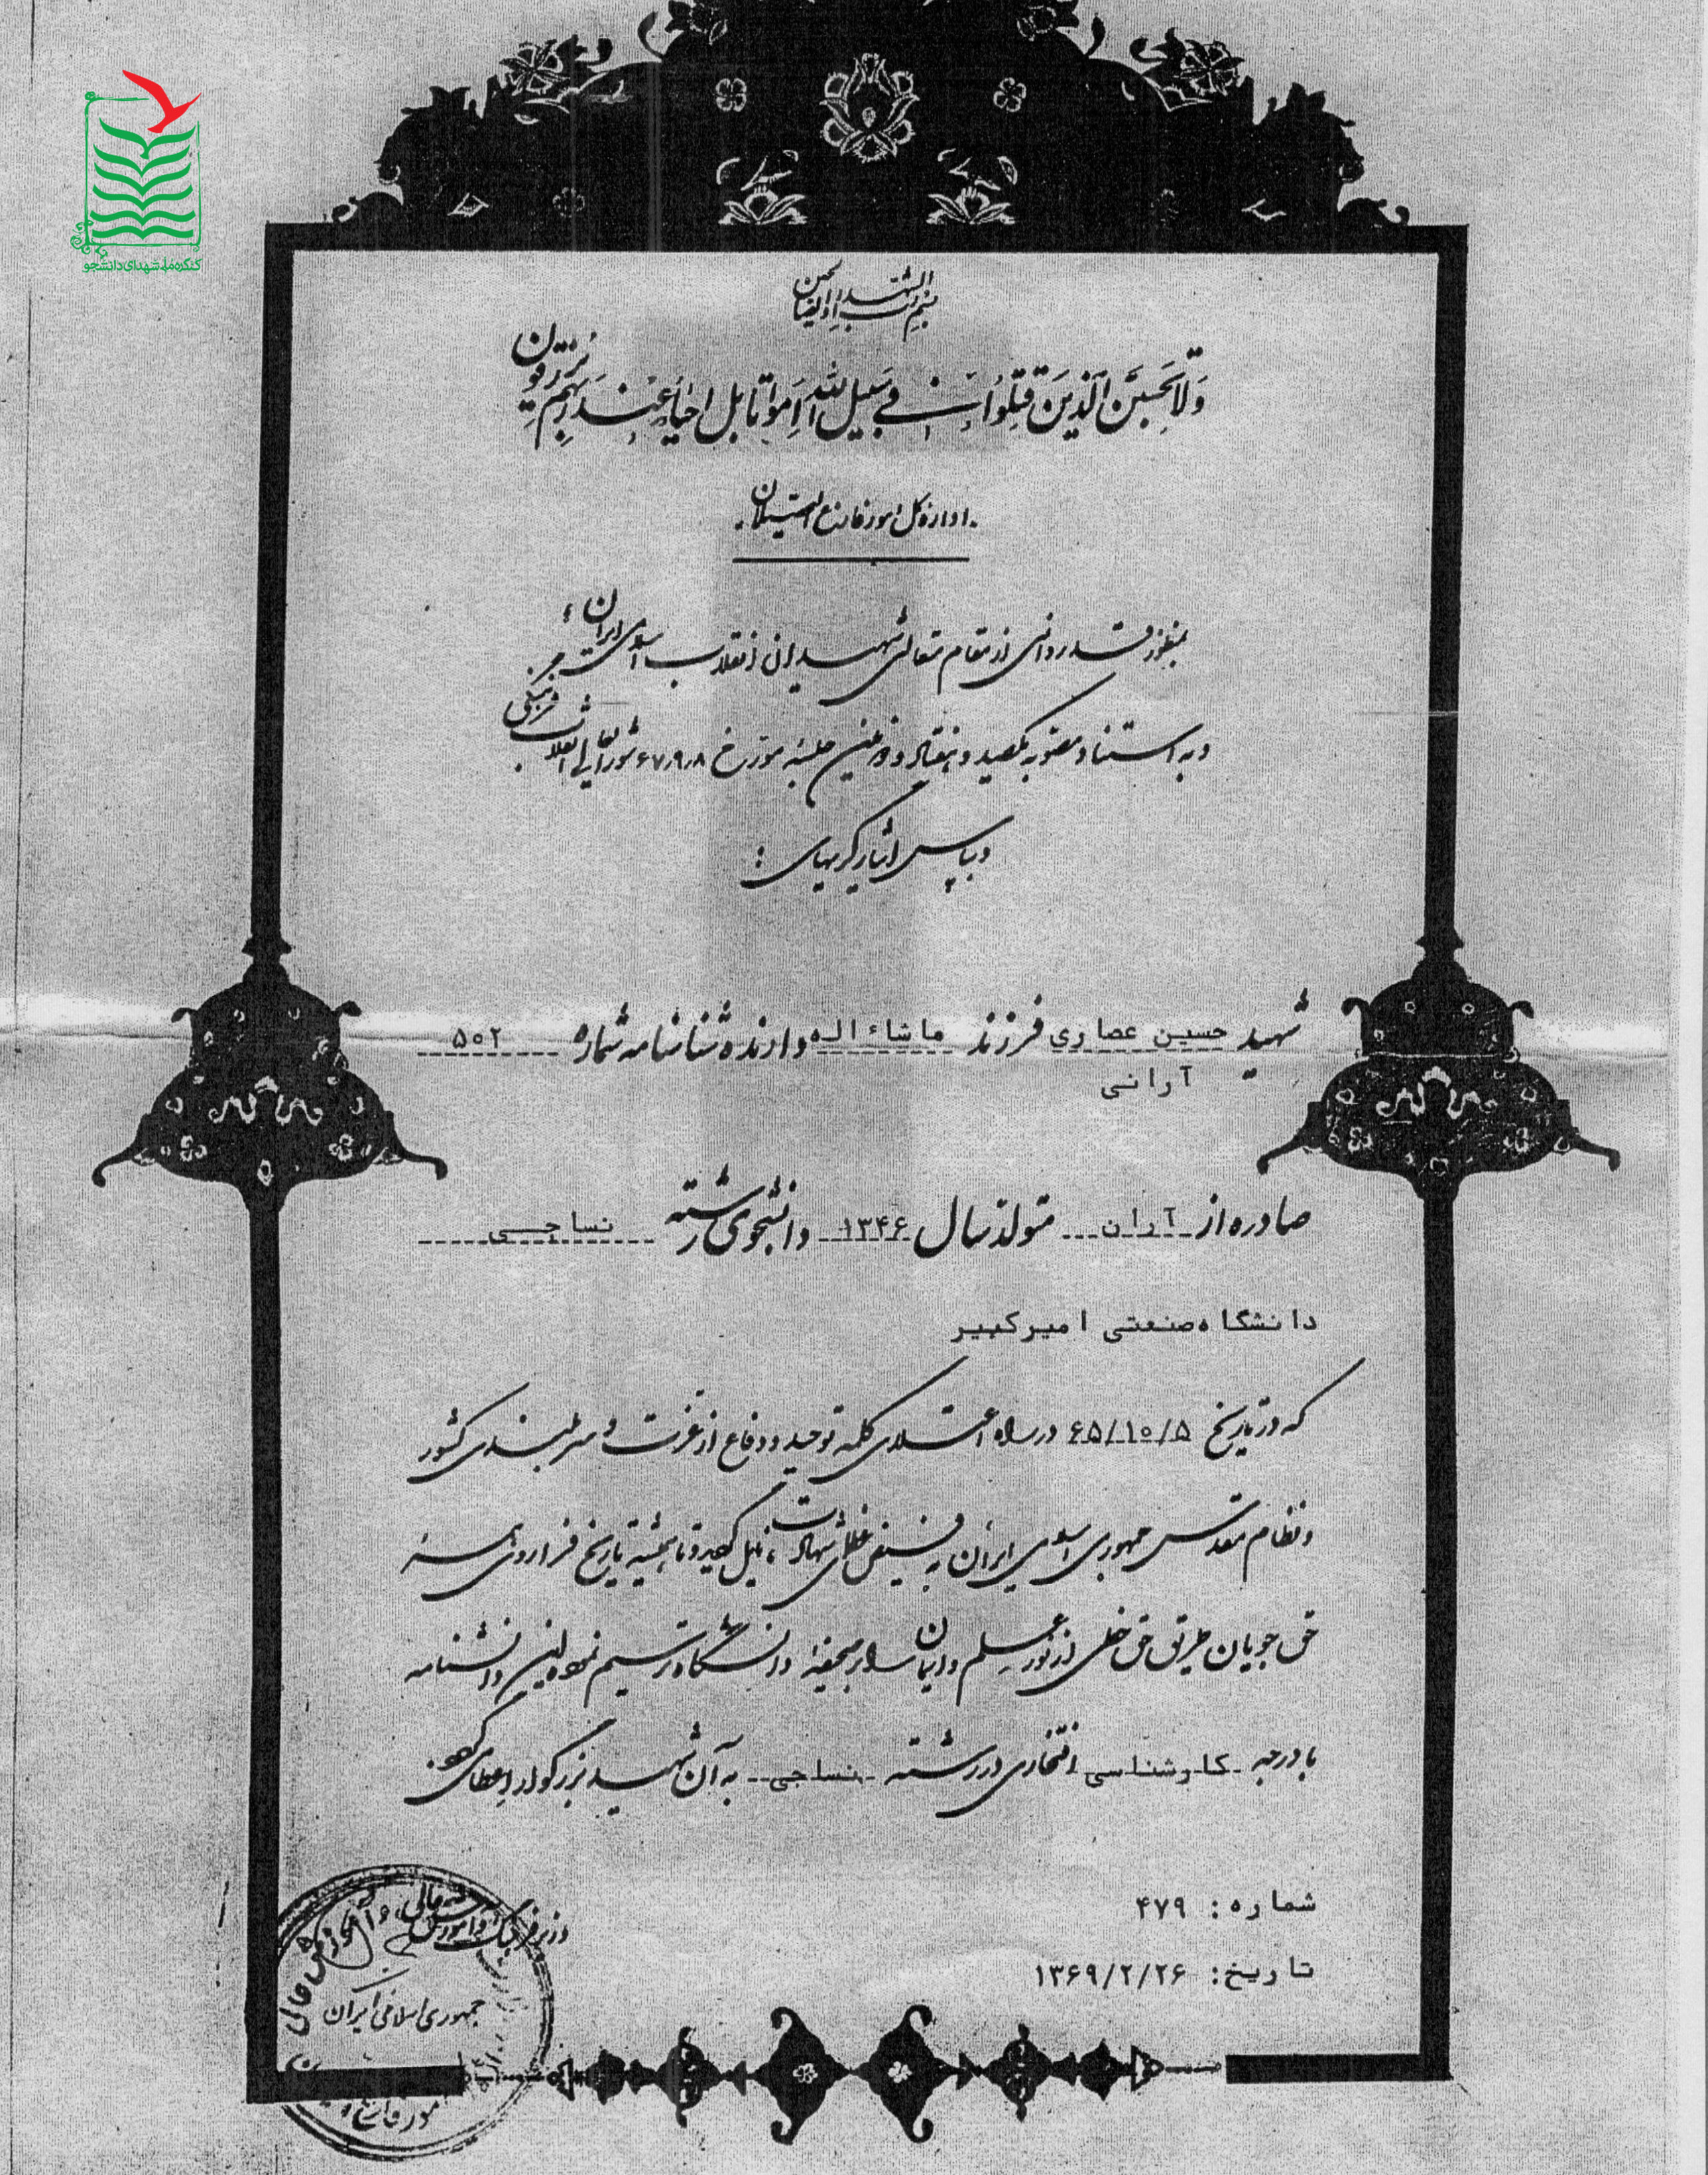 کنگره ملی شهدای دانشجو
بسم رب الشهداء و الصالحین
وَلَا تَحسَبَنَّ الَّذِینَ قُتِلُوا فِی سَبِیلِ اللهِ اَمواتا بَل اَحیاء عِندَ رَبِّهِم یُرزَقون
اداره کل امور فارغ التحصیلان
بمنظور قدردانی از مقام متعالی شهیدان انقلاب اسلامی ایران
و به استناد مصوبه یکصد و هفتاد و هفتمین جلسه مورخ ۶۷/۹/۸ شورایعالی انقلاب فرهنگی
و بپاس ایثارگریهای :
شهید حسین عصاری فرزند ماشاءاله دارنده شناسنامه شماره ۵۰۲
آرانی
صادره از آران متولد سال ۱۳۴۶ دانشجوی رشته نساجی
دانشگاه صنعتی امیرکبیر
که در تاریخ ۶۵/۱۰/۵ در راه اعتلای کلمه توحید و دفاع از عزت و سربلندی کشور
و نظام مقدس جمهوری اسلامی ایران به فیض عظمای شهادت نایل گردید و تا همیشه تاریخ فراروی همه
حق جویان طریق حق خطی از نور علم و ایمان را بر صحیفه دانشگاه ترسیم نمود این دانشنامه
با درجه کارشناسی افتخاری در رشته نساجی به آن شهید بزرگوار اعطا می گردد
شماره : ۴۷۹
تاریخ : ۱۳۶۹/۲/۲۶
وزیر فرهنگ و آموزش عالی
جمهوری اسلامی ایران